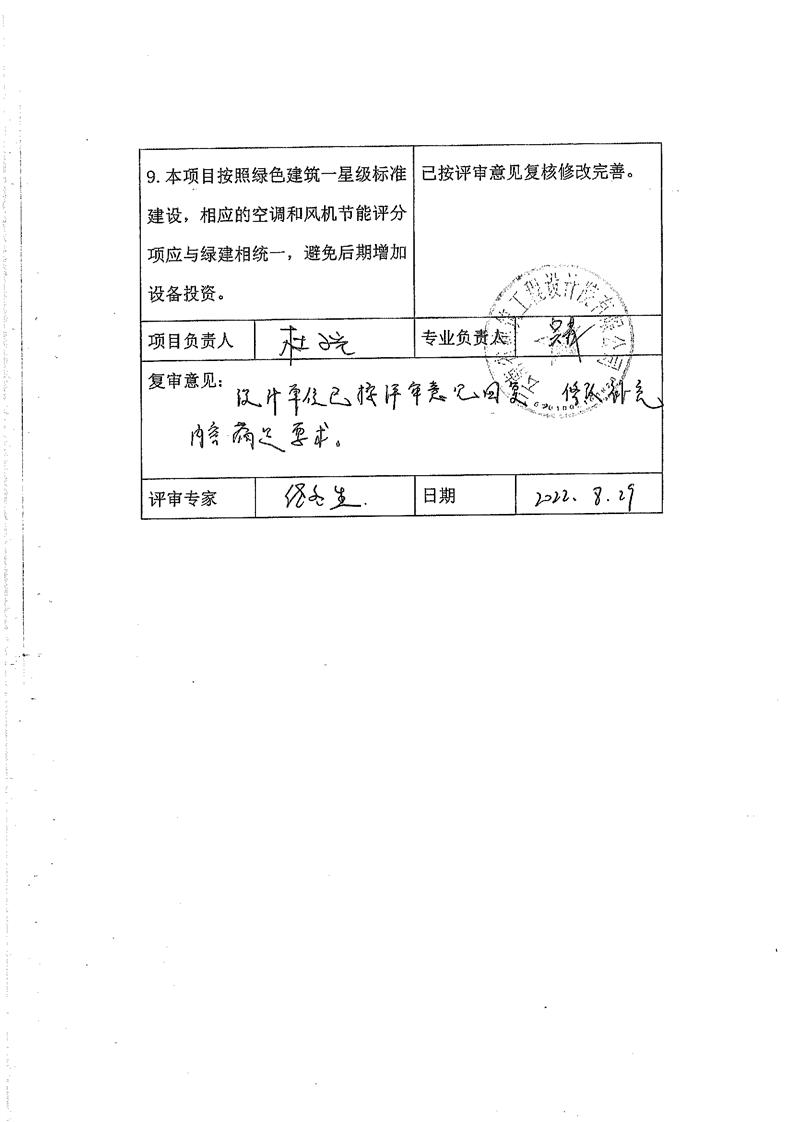 9. 本项目按照绿色建筑一星级标准
建设，相应的空调和风机节能评分
项应与绿建相统一，避免后期增加
设备投资。
已按评审意见复核修改完善。
项目负责人
专业负责人
工程设计院有限公司
复审意见：
设计单位已按评审意见回复 修改补充
内容满足要求。
评审专家
日期
2022.8.29